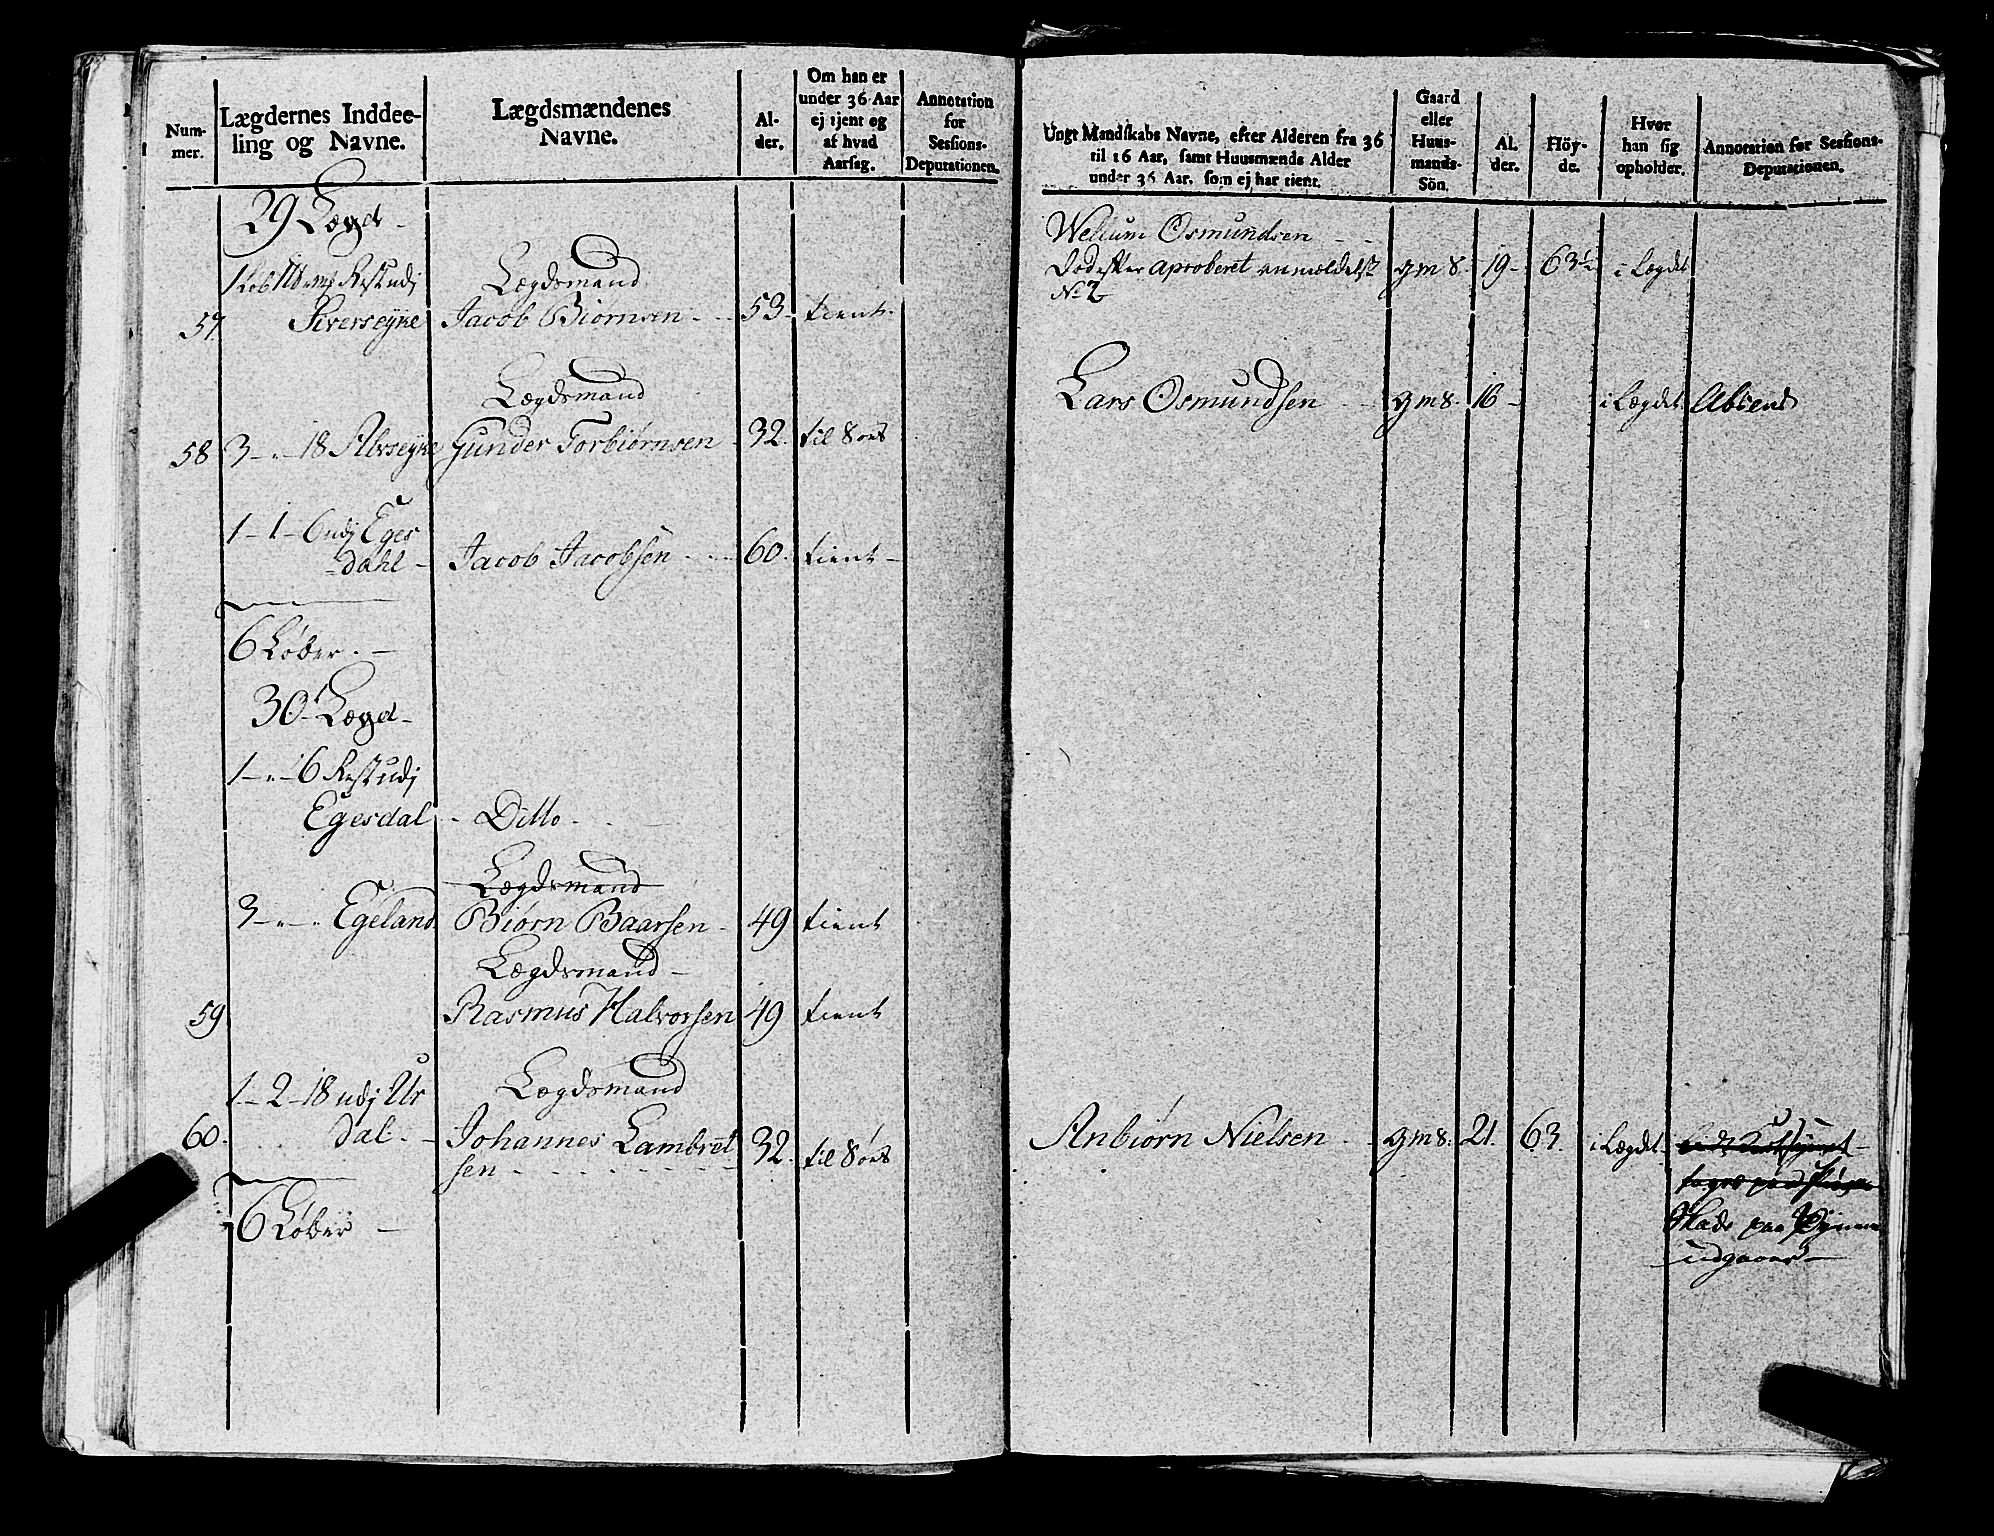 Num-
mer.
Lægdernes Inddee-
ling og Navne.
Lægdsmændenes
Navne.
Al-
der.
Om han er
under 36 Aar
ej tjent og
af hvad
Aarsag.
Annotation
for
Sessions-
Deputationen.
29 Lægd
Restudj Lægdsmand
57 Siverseyne Jacob Biørnsen 53 tient
Lægdsmand
58 3 - " - 18 Gunder Torbiørnsen 32 til Søes
1 - 1 - 6 udj Eges
dahl Jacob Jacobsen 60 tient
6 Løber
30 Lægd
1 - " - 6 Rest udj
Egesdal Ditto
Lægdsmand
3 - " - " Egeland Biørn Baarsen 49 tient
Lægdsmand
59 Rasmus Halvorsen 49 tient
1 - 2 - 18 udj Ur Lægdsmand
60 dal Johannes Lambret 32 til Søes
sen
6 Løber
Ungt Mandskabs Navne, efter Alderen fra 36
til 16 Aar, samt Huusmænds Alder
under 36 Aar, som ej har tient.
Gaard
eller
Huus-
mands-
Sön.
Al-
der.
Höy-
de.
Hvor
han sig
opholder.
Annotation for Sessions-
Deputationen.
Wellum Osmundsen
Død efter aproberet anmeldelse gm s. 19 63½ i Lægdet
No 2
Lars Osmundsen gm s. 16 i Lægdet Absent
Anbiørn Nielsen gm s. 21 63 i Lægdet
Skade paa
udgaaer